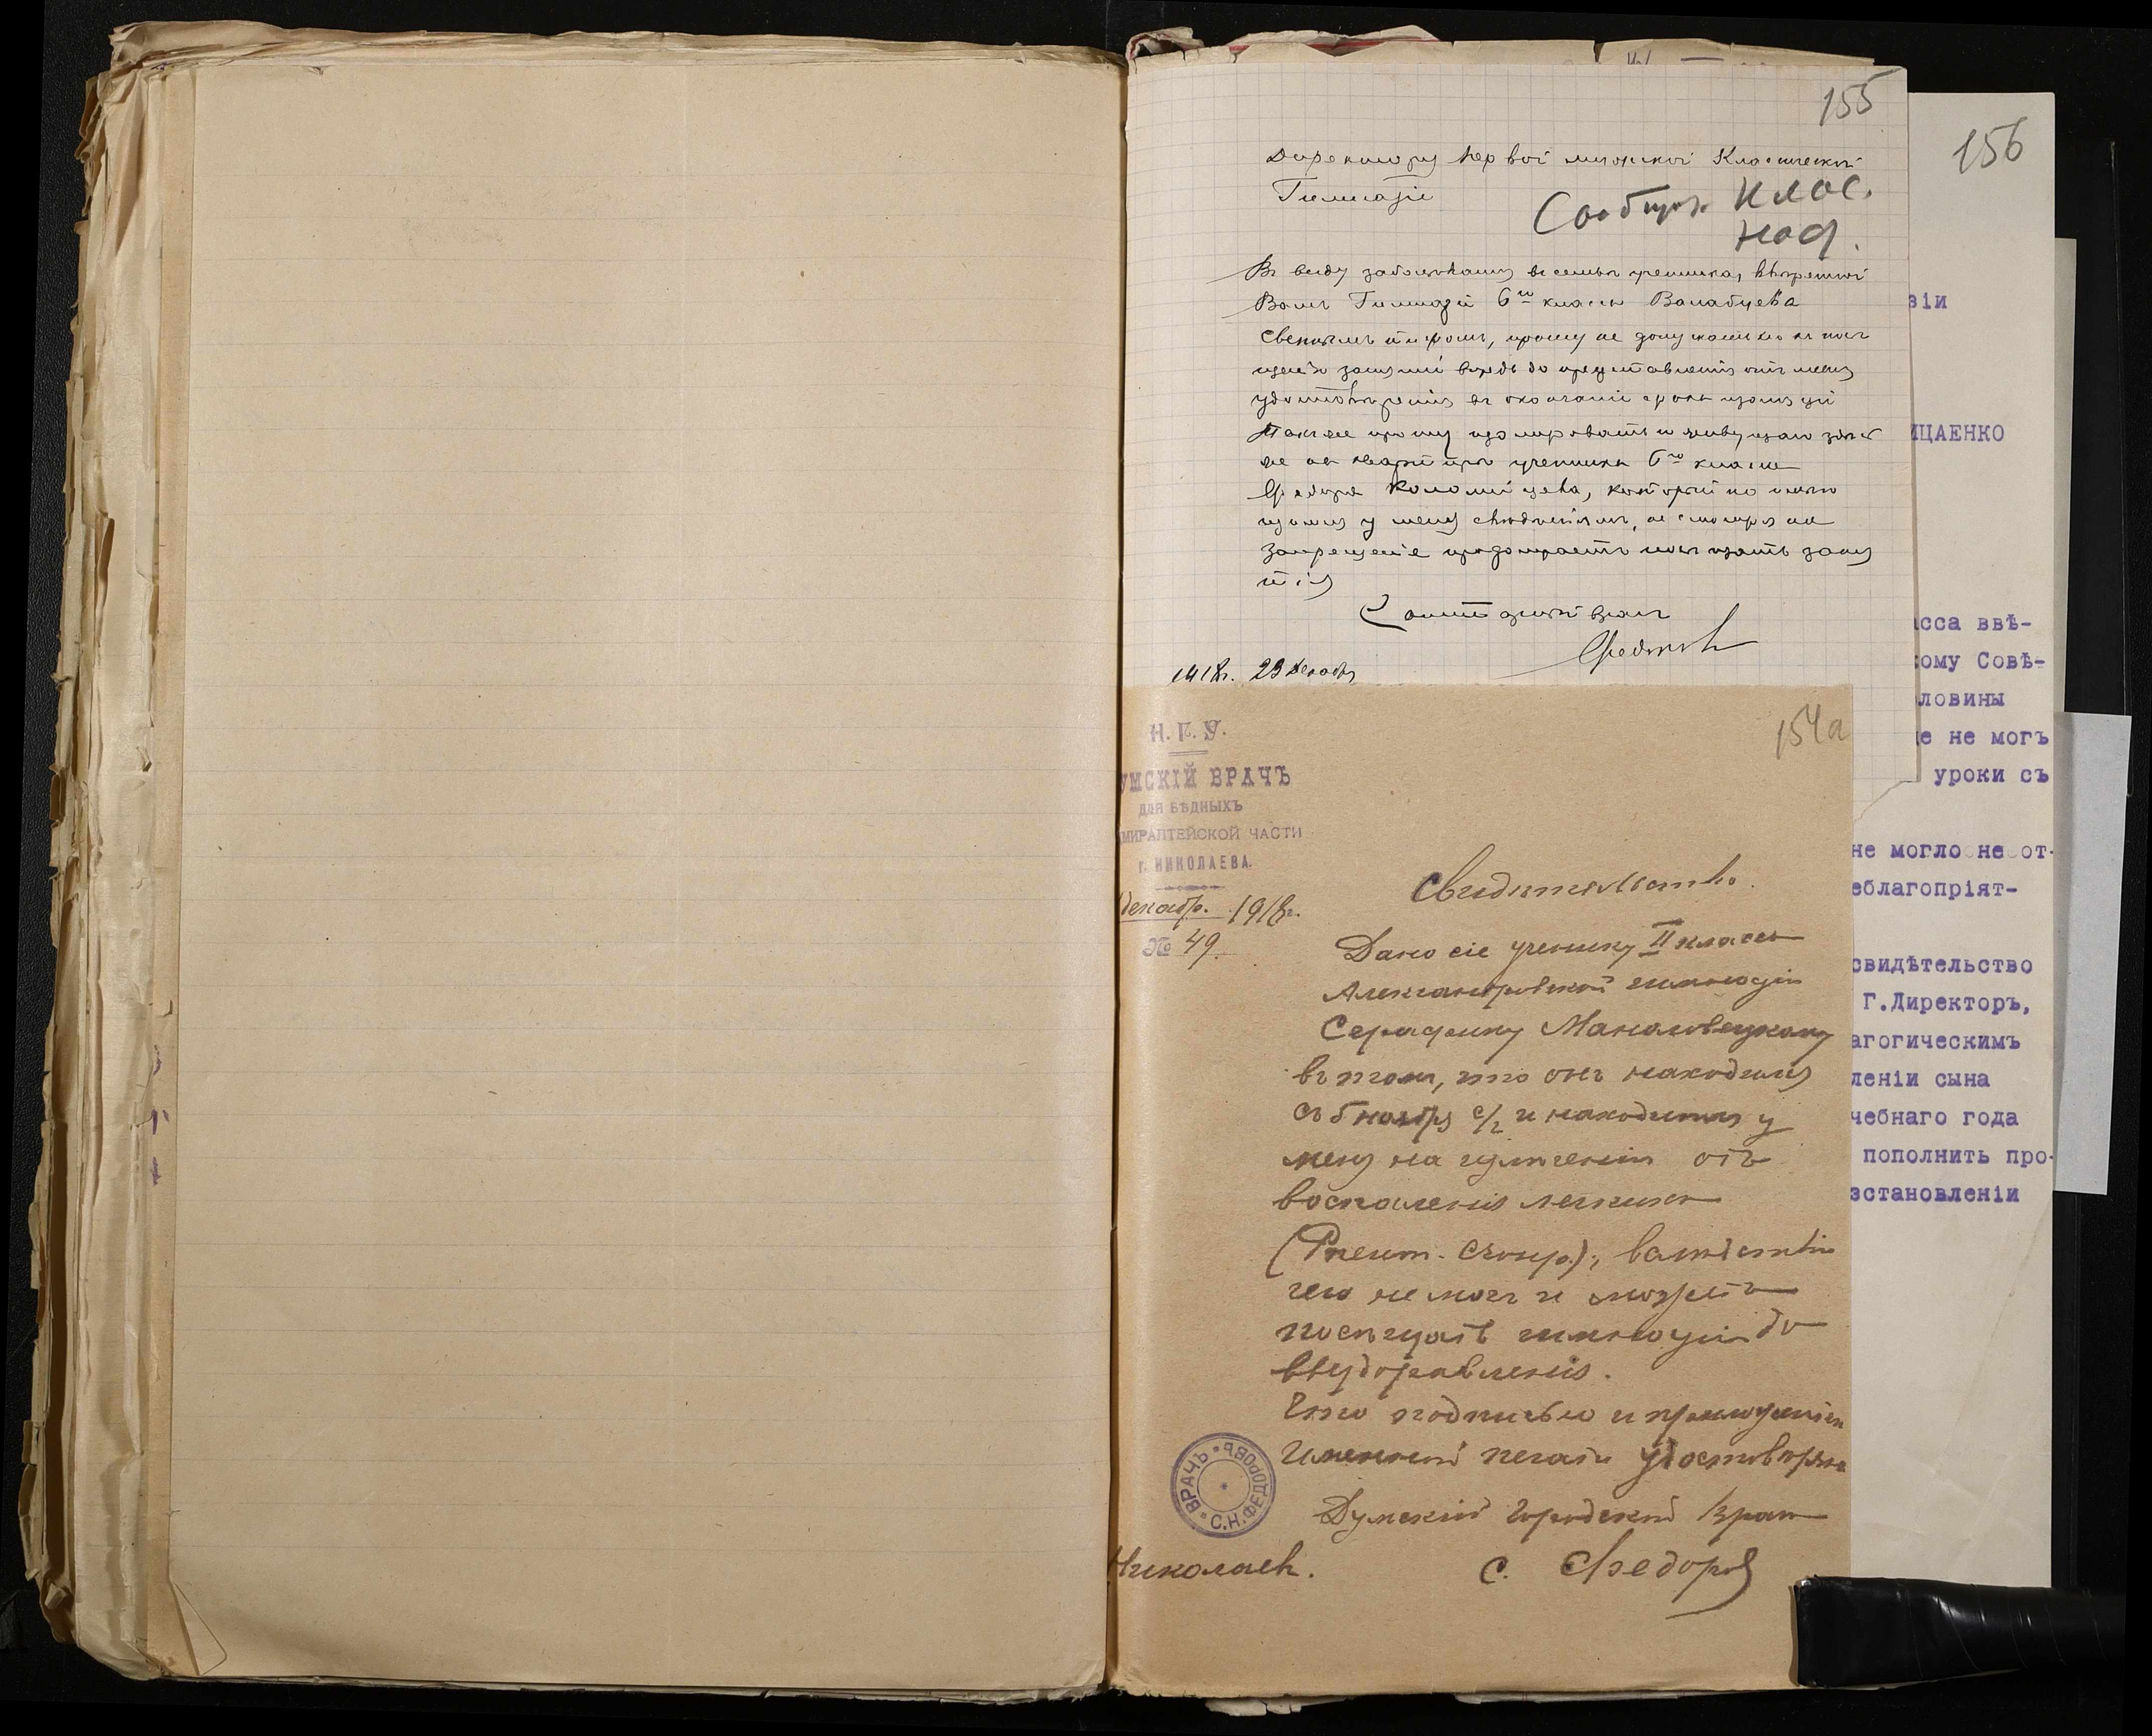 155
Директору первой мужской Классической
Гимназіи
Сообщ. клас.
над.
Въ виду заболѣванія въ семьѣ ученика, ввѣренной
Вамъ Гимназіи 6го класса
прошу не допускать его къ посѣ
щенію занятій впредь до представленія отъ меня
удостовѣренія объ окончаніи срока изоляціи
Также прошу изолировать и живущаго здѣсь
же на квартирѣ ученика 6го класса
Федора Коломійцева, который по имѣю
щимся у меня свѣдѣніямъ, не смотря на
запрещеніе продолжаетъ посѣщать заня
тія
Санитарный врачъ
1918г. 23 Декабря
154а
Н.Г.У.
УМСКІЙ ВРАЧЪ
ДЛЯ БѢДНЫХЪ
МИРАЛТЕЙСКОЙ ЧАСТИ
г. НИКОЛАЕВА.
Декабр. 1918г.
№ 49.
Свидѣтельство.
Дано сіе ученику II класса
Александровской гимназіи
Серафиму
въ томъ, что онъ находился
съ 5 ноября с/г и находится у
меня на излѣченіи отъ
воспаленія легкихъ
(Pneum. croup.), вслѣдствіе
чего не могъ и не можетъ
посѣщать гимназіи до
выздоравленія.
Что подписью и приложеніемъ
именной печати удостовѣряю
Думскій Городской Врачъ
С. Федоровъ
ВРАЧЪ * С.Н.ФЕДОРОВЪ *
Николаевъ.
156
віи
ИЦАЕНКО
асса ввѣ-
кому Совѣ-
ловины
е не могъ
уроки съ
не могло не от-
еблагопріят-
свидѣтельство
Г.Директоръ,
агогическимъ
леніи сына
чебнаго года
пополнить про-
зстановленіи